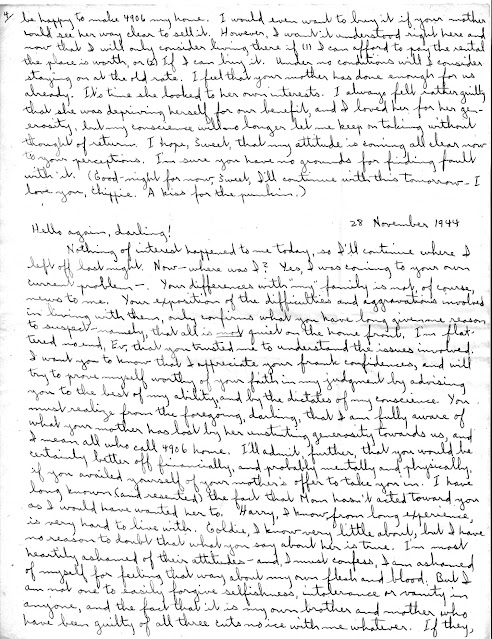 4/ be happy to make 4906 my home. I would even want to buy it if your mother
could see her way clear to sell it. However, I want it understood right here and
now that I will only consider living there if (1) I can afford to pay the rental
the place is worth, or (2) If I can buy it. Under no conditions will I consider
staying on at the old rate. I feel that your mother has done enough for us
already. It's time she looked to her own interests. I always felt rather guilty
that she was depriving herself for our benefit, and I loved her for her gen-
erosity, but my conscience will no longer let me keep on taking without
thought of return. I hope, Sweet, that my attitude is coming all clear now
to your perceptions. I'm sure you have no grounds for finding fault
with it. (Good-night for now, Sweet, I'll continue with this tomorrow - I
love you, Chippie. A kiss for the punkin.)
28 November 1944
Hello again, darling!
Nothing of interest happened to me today, so I'll continue where I
left off last night. Now - where was I? Yes, I was coming to your own
current problem -. Your differences with "my" family is not, of course,
news to me. Your exposition of the difficulties and aggravations involved
in living with them, only confirms what you have long given me reason
to suspect - namely, that all is not quiet on the home front. I'm flat-
tered no end, Ev, that you trusted me to understand the issues involved.
I want you to know that I appreciate your frank confidences, and will
try to prove myself worthy of your faith in my judgment by advising
you to the best of my ability and by the dictates of my conscience. You
must realize from the foregoing, darling, that I am fully aware of
what your mother has lost by her unstinting generosity towards us, and
I mean all who call 4906 home. I'll admit, further, that you would be
certainly better off financially, and probably mentally and physically,
if you availed yourself of your mother's offer to take you in. I have
long known (and resented) the fact that Mom hasn't acted toward you
as I would have wanted her to. Harry, I know from long experience,
is very hard to live with. Goldie, I know very little about, but I have
no reason to doubt that what you say about her is true. I'm most
heartily ashamed of their attitudes - and, I must confess, I am ashamed
of myself for feeling that way about my own flesh and blood. But I
am not one to easily forgive selfishness, intolerance or vanity in
anyone, and the fact that it is my own brother and mother who
have been guilty of all three cuts no ice with me whatever. If they,